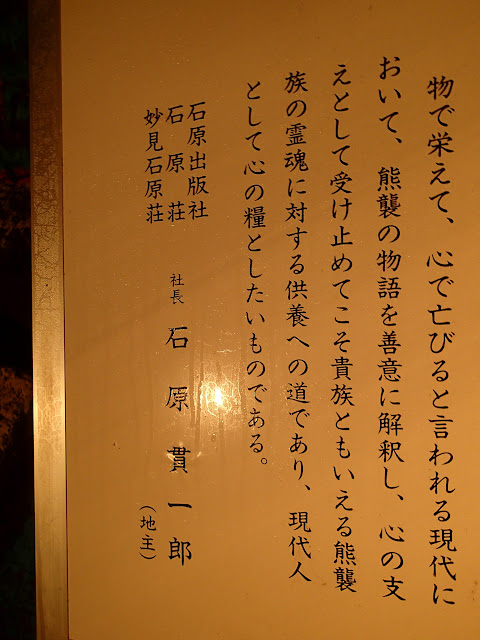 物で栄えて、心で亡びると言われる現代に
おいて、熊襲の物語を善意に解釈し、心の支
えとして受け止めてこそ貴族ともいえる熊襲
族の霊魂に対する供養への道であり、現代人
として心の糧としたいものである。
石原出版社
石原荘
妙見石原荘
社長 石原貫一郎
（地主）